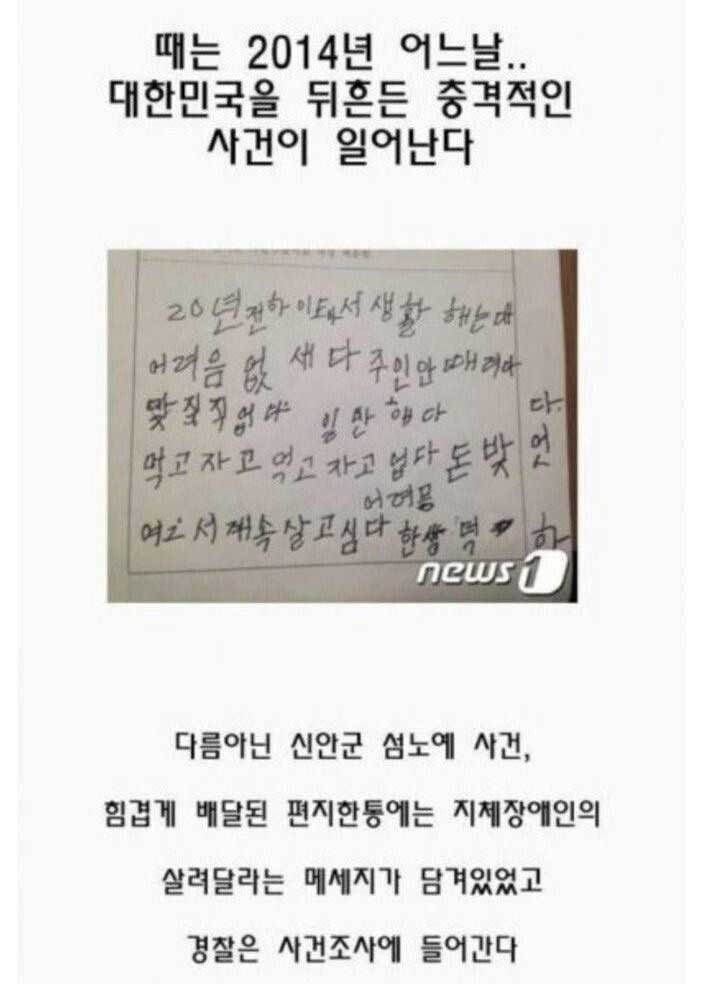 때는 2014년 어느날..
대한민국을 뒤흔든 충격적인
사건이 일어난다
20년전하이도서 생활 해는대
어려음 없 새다 주인안때려다
맟질직 없다 임만해다
먹고자고 먹고자고 업다 돈밪엇다.
어려몽
여그서 계속살고심다 한쌩먹 하
news1
다름아닌 신안군 섬노예 사건,
힘겹게 배달된 편지한통에는 지체장애인의
살려달라는 메세지가 담겨있었고
경찰은 사건조사에 들어간다